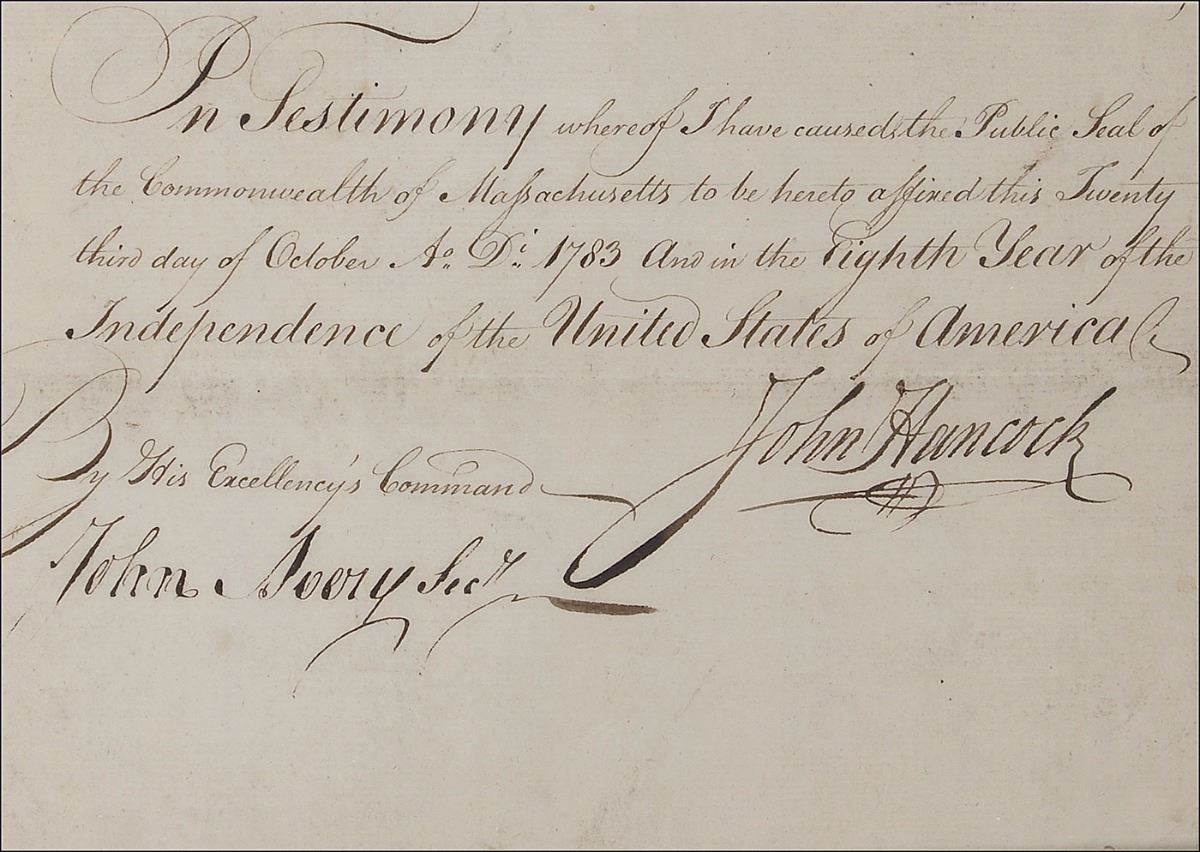 In Testimony whereof I have caused the Public Seal of
the Commonwealth of Massachusetts to be hereto affixed this Twenty
third day of October Ao. Di. 1783 And in the Eighth Year of the
Independence of the United States of America
John Hancock
By His Excellency's Command
John Avery Secy